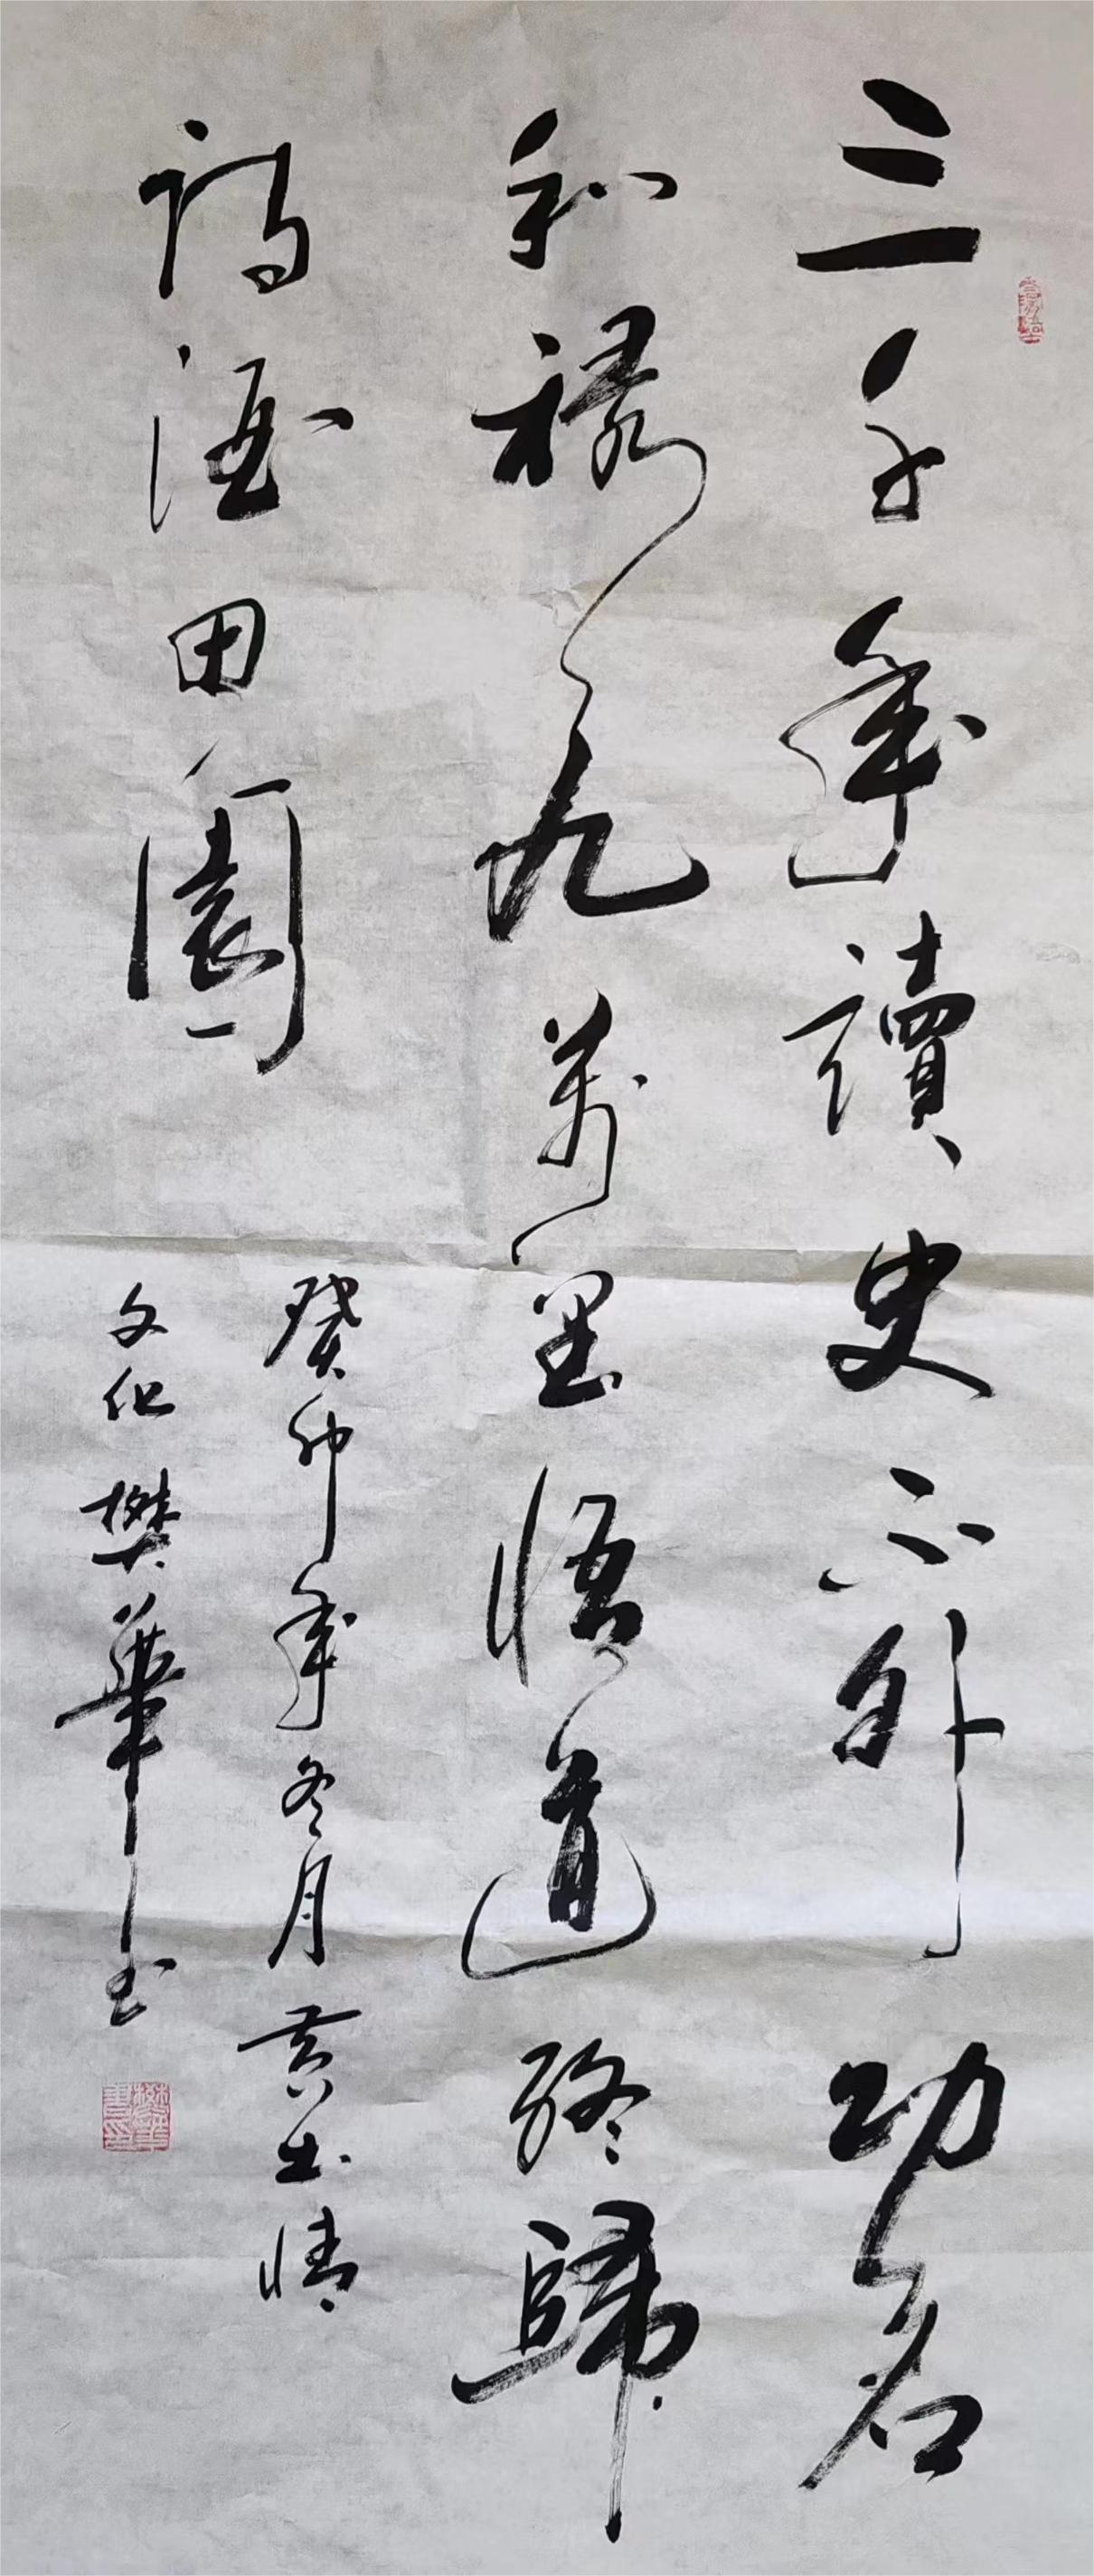 三千年讀史不外功名
利祿九萬里悟道終歸
詩酒田園
癸卯年冬月黄出情
文化樊華书